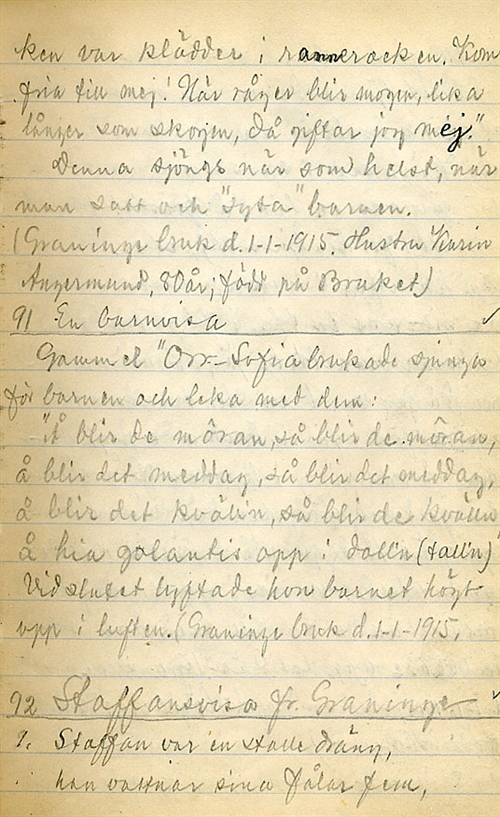 ken var klädder i rannerocken. Kom
fria till mej! När råger blir mogen, lika
långer som skogen, då giftar jag mej."
Denna sjöngs när som helst, när
man satt och "syta" barnen.
(Graninge bruk d. 1-1-1915. Hustru Karin
Angermund, 80 år; född på Bruket)
91 En barnvisa ✓
Gammel "Orr-Sofia brukade sjunga
för barnen och leka med dem:
"Å blir de möran, så blir de möran,
å blir det meddag, så blir det meddag,
å blir det kvälln, så blir de kvälln
å hia galantis opp i dalln (talln)"
Vid slutet lyftade hon barnet högt
opp i luften. (Graninge bruk d. 1-1-1915.
92 Staffansvisa fr. Graninge ✓
1. Staffan var en stalledräng,
han vattnar sina fålar fem,